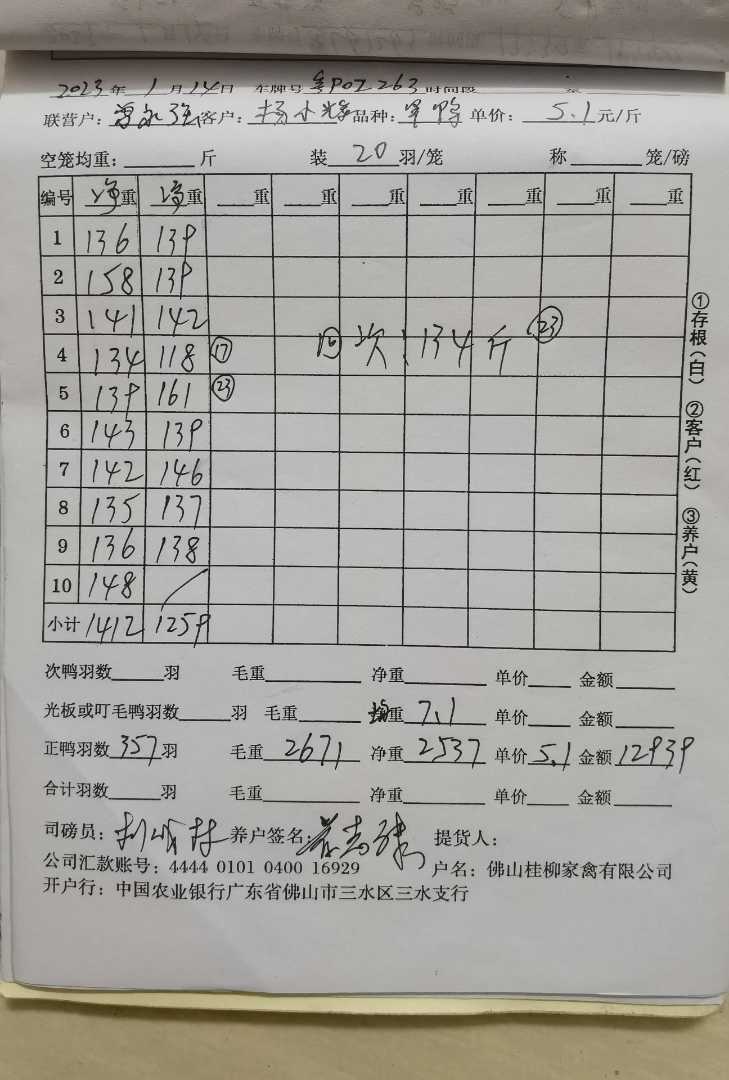 2023年 1月14日 车牌号 粤P0Z263 时间段
联营户: 客户: 杨小 品种: 单价: 5.1元/斤
空笼均重: 斤 装 20 羽/笼 称 笼/磅
编号 净重 净重 重 重 重 重 重 重 重
1 136 139
2 158 139
3 141 142
4 134 118 ⑰ 回次: 134斤 ㉓
5 139 161 ㉓
6 143 139
7 142 146
8 135 137
9 136 138
10 148 /
小计 1412 1259
①存根(白) ②客户(红) ③养户(黄)
次鸭羽数 羽 毛重 净重 单价 金额
光板或叮毛鸭羽数 羽 毛重 均重 7.1 单价 金额
正鸭羽数 357 羽 毛重 2671 净重 2537 单价 5.1 金额 12939
合计羽数 羽 毛重 净重 单价 金额
司磅员: 养户签名: 提货人:
公司汇款账号: 4444 0101 0400 16929 户名: 佛山桂柳家禽有限公司
开户行: 中国农业银行广东省佛山市三水区三水支行